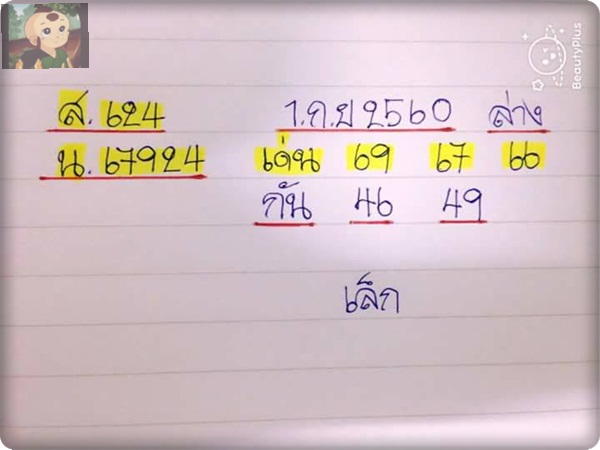 ส. 624 1.ก.ย 2560 ล่าง
น. 67924 เด่น 69 67 66
กัน 46 49
เล็ก
BeautyPlus